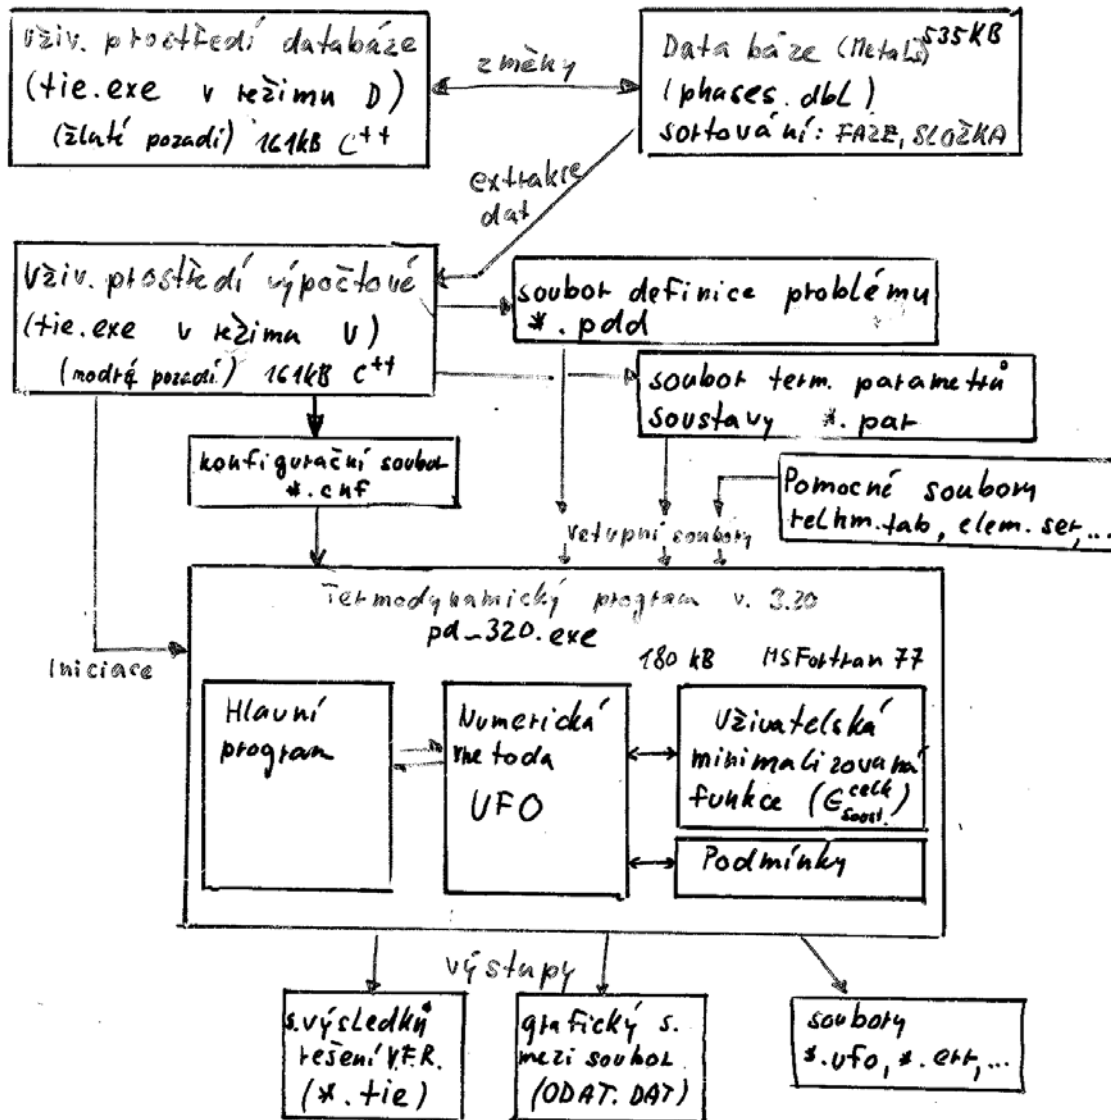 Uživ. prostředí databáze
(tie.exe v režimu D)
(žluté pozadí) 161kB C++
změny
Data báze (Metals) 535KB
(phases.dbl)
sortování: FÁZE, SLOŽKA
extrakce
dat
Uživ. prostředí výpočtové
(tie.exe v režimu V)
(modré pozadí) 161kB C++
soubor definice problému
*.pdd
soubor term. parametrů
soustavy *.par
konfigurační soubor
*.cnf
Pomocné soubory
relhm.tab, elem.ser,...
vstupní soubory
Iniciace
Termodynamický program v. 3.20
pd_320.exe
180 kB MSFortran 77
Hlavní
program
Numerická
metoda
UFO
Uživatelská
minimalizovaná
funkce (G celk soust.)
Podmínky
výstupy
s.výsledků
řešení V.F.R.
(*.tie)
grafický s.
mezi soubor
(ODAT.DAT)
soubory
*.ufo, *.err,...